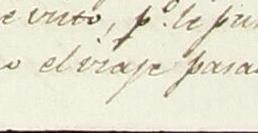 evito, p.º le pu
o el viaje para